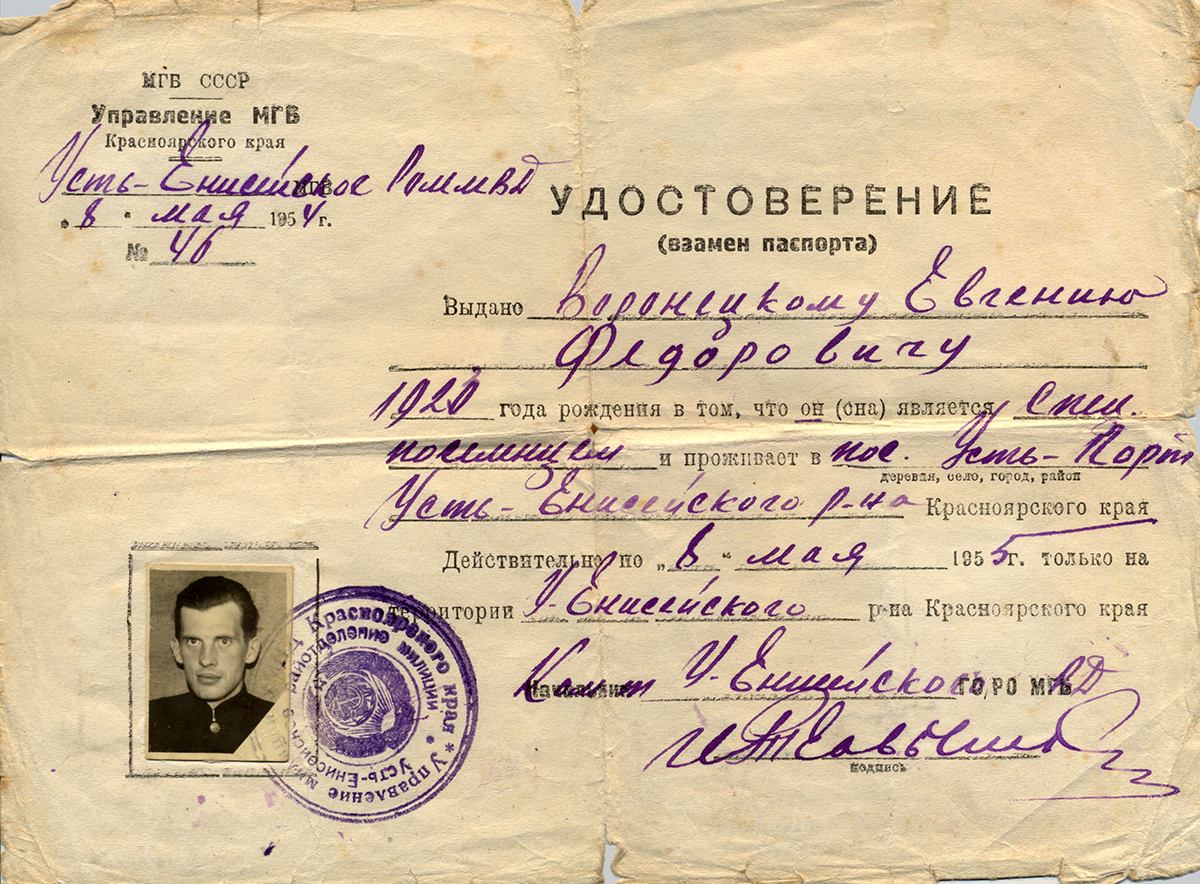 МГБ СССР
Управление МГБ
Красноярского края
Усть-Енисейское РОМВД
„8" мая 1954 г.
№ 46
УДОСТОВЕРЕНИЕ
(взамен паспорта)
Выдано Воронецкому Евгению
Федоровичу
1920 года рождения в том, что он (она) является спец.
поселенцем и проживает в пос. Усть-Порт
деревня, село, город, район
Усть-Енисейского р-на Красноярского края
Действительно по „8" мая 1955 г. только на
территории У-Енисейского р-на Красноярского края
Начальник У-Енисейского ГО, РО МГБ
подпись
Красноярского края * Управление
райотделение милиции
Усть-Енисейск